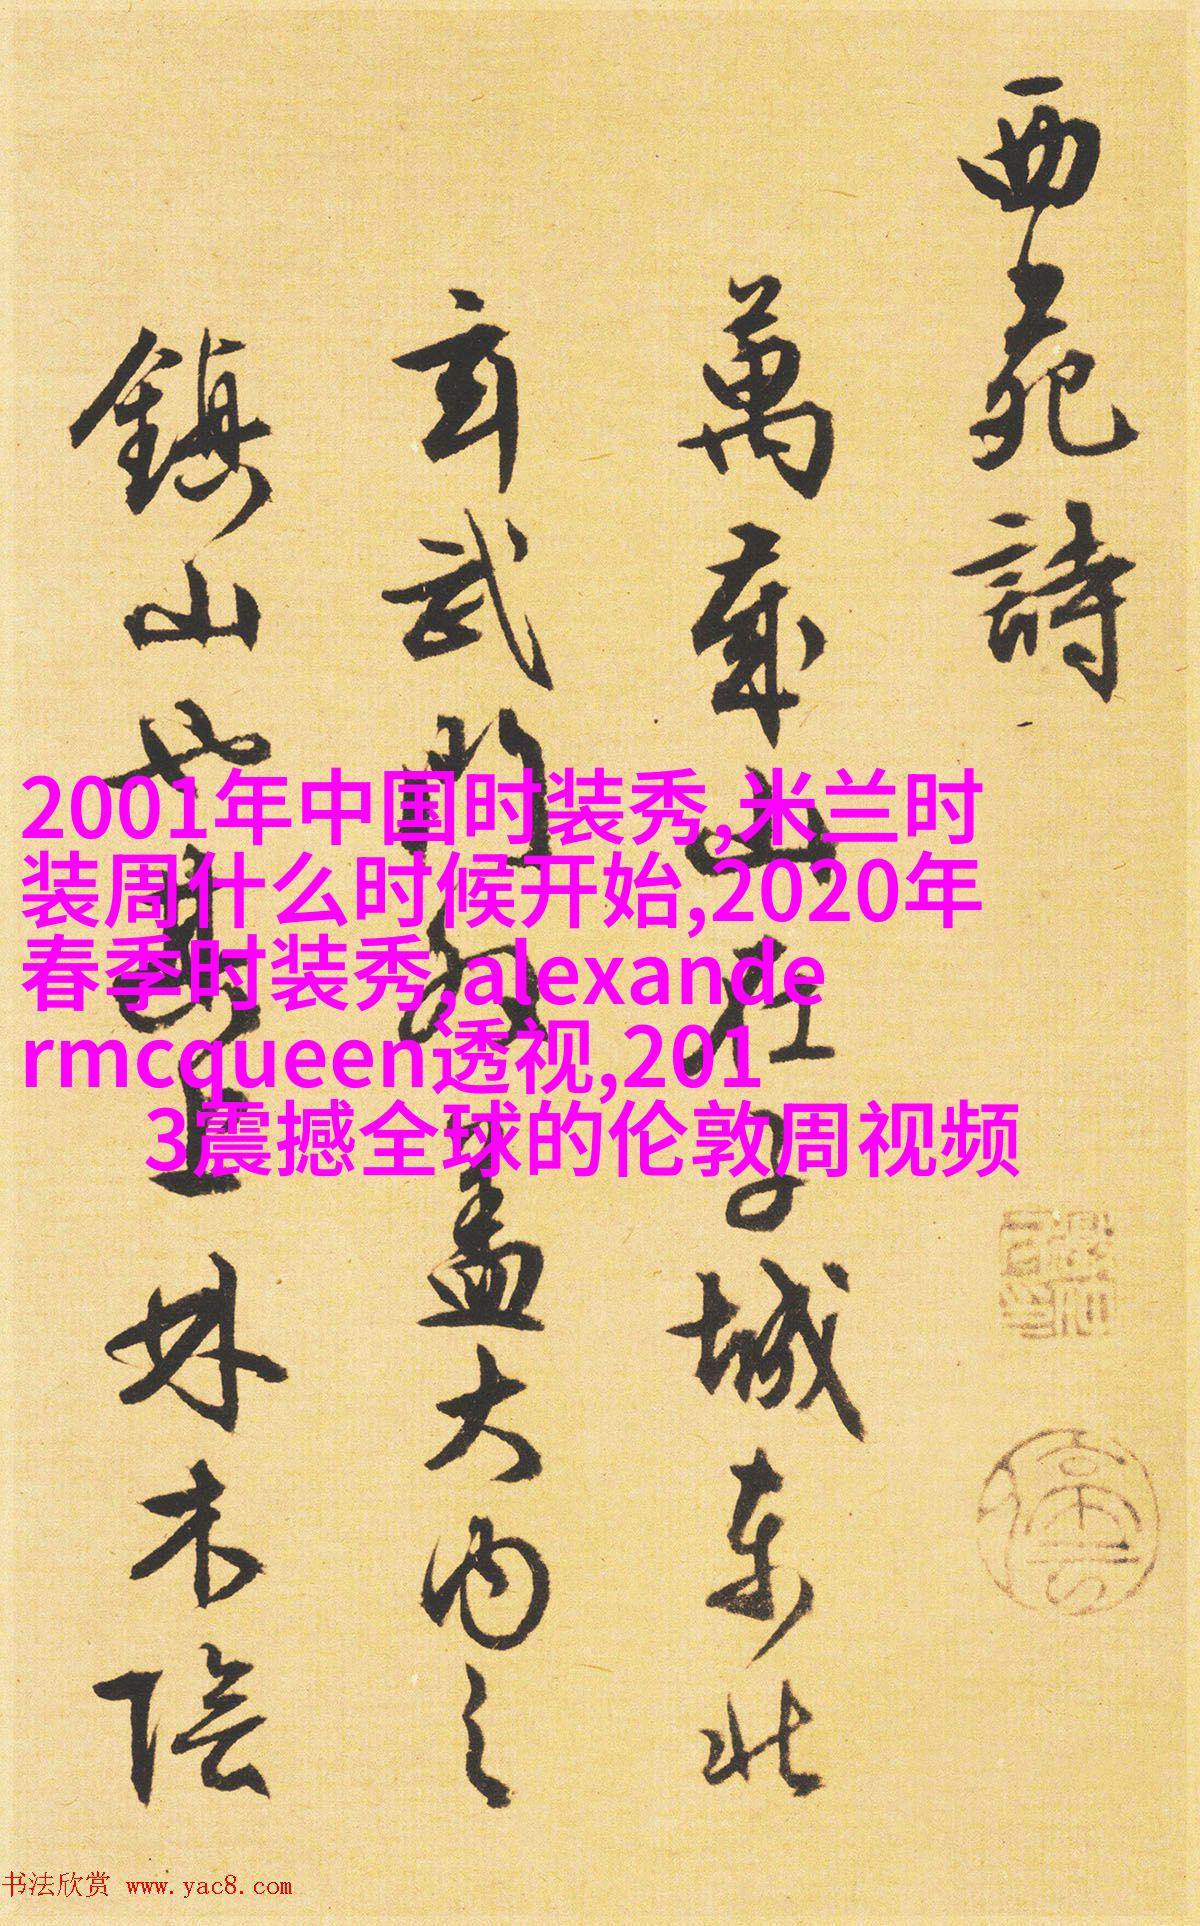 西苑詩
萬歲山在子城東北
玄武門外蓋大内之
鎮山也其上林木陰
2001年中国时装秀,米兰时
装周什么时候开始,2020年
春季时装秀,alexande
rmcqueen透视,201
3震撼全球的伦敦周视频
书法欣赏 www.yac8.com